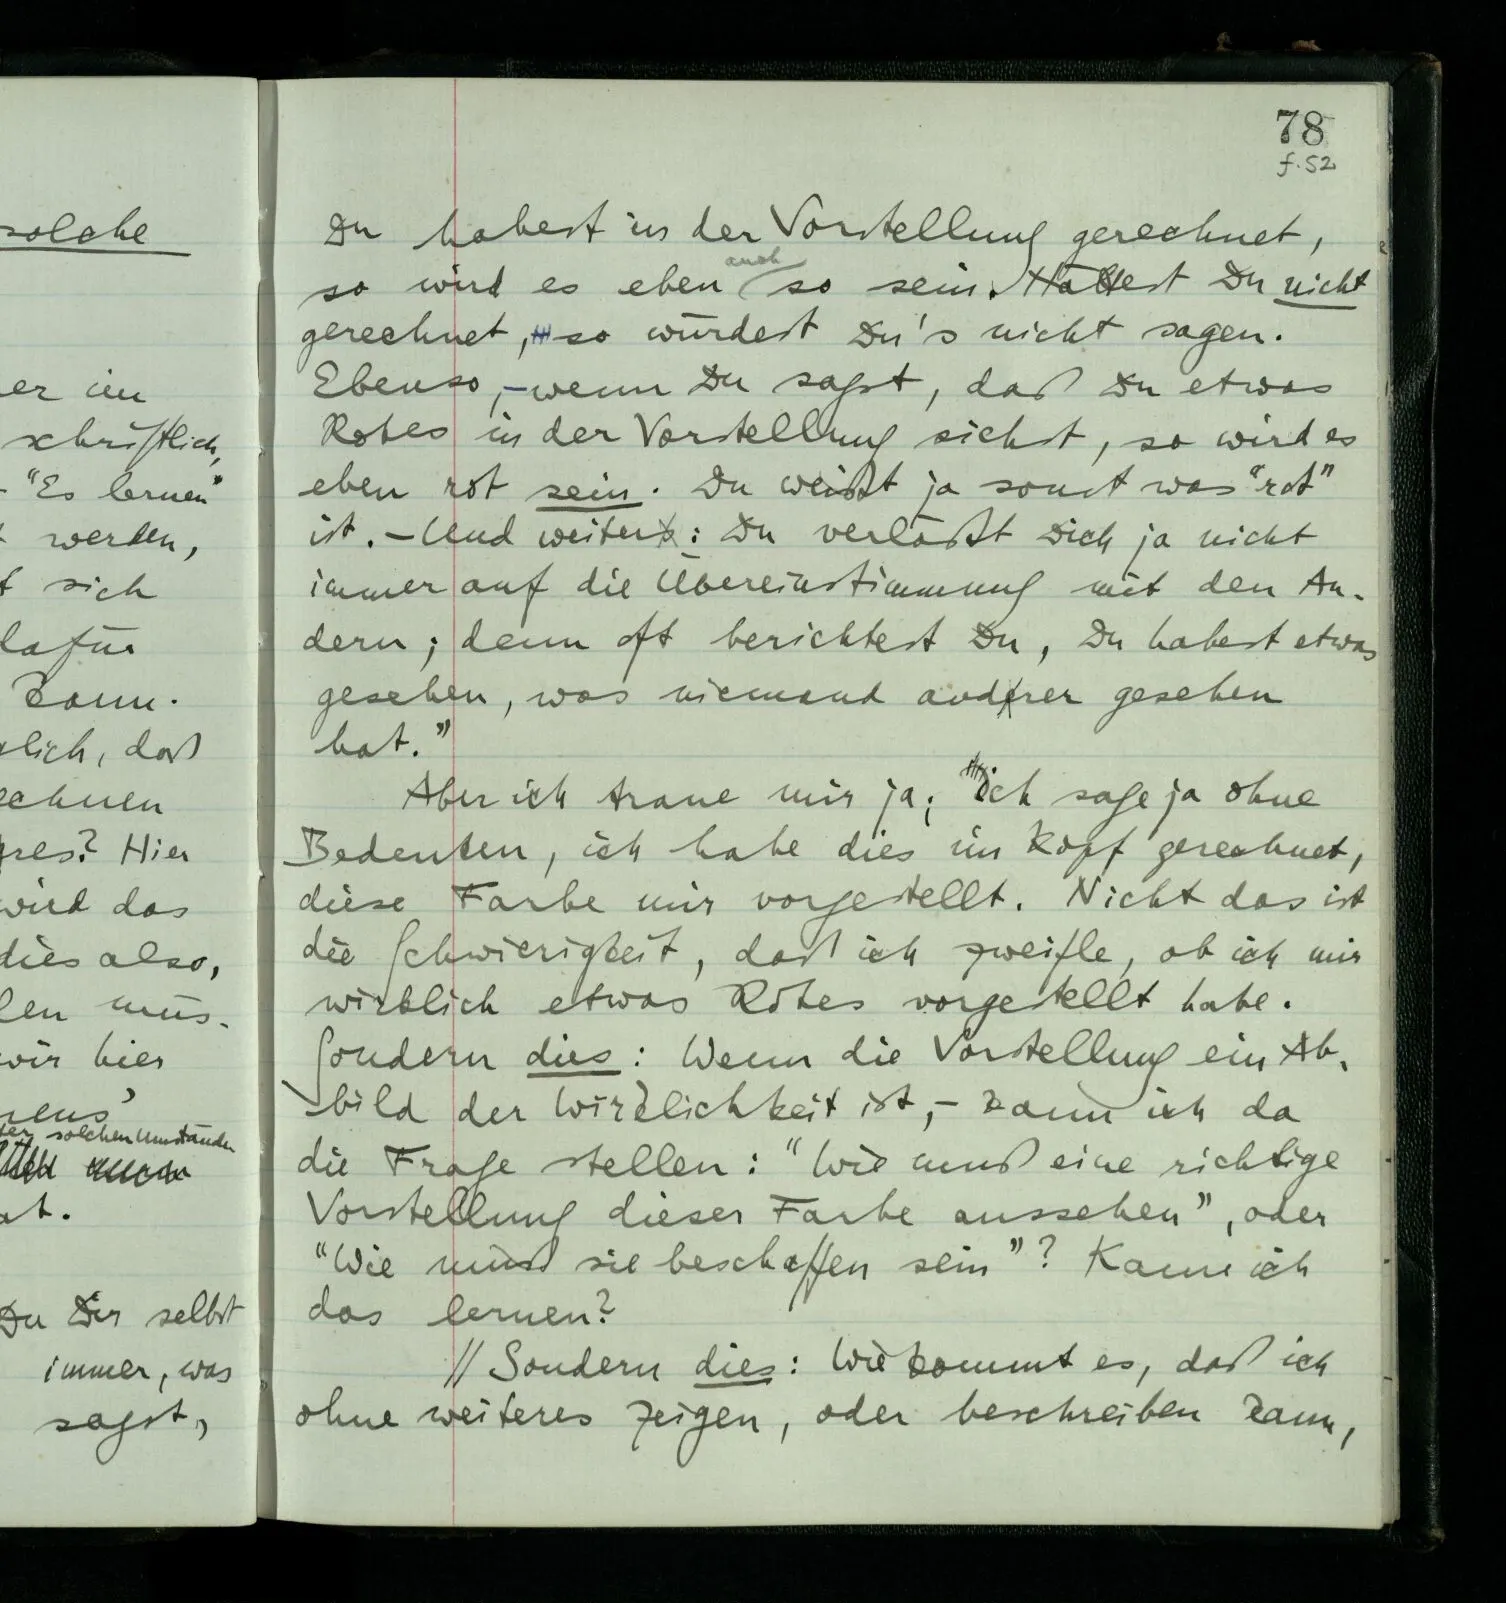 solche
er im
schriftlich,
- "Es lernen"
werden,
t sich
dafür
kann.
lich, daß
echnen
res? Hier
wird das
dies also,
len müs-
wir hier
nens'
ter solchen Umständen
at.
Du Dir selbst
immer, was
sagst,
78
f.52
Du habest in der Vorstellung gerechnet,
auch
so wird es eben so sein. Hättest Du nicht
gerechnet, so würdest Du's nicht sagen.
Ebenso, – wenn Du sagst, daß Du etwas
Rotes in der Vorstellung siehst, so wird es
eben rot sein. Du weißt ja sonst was "rot"
ist. – Und weiter: Du verläßt Dich ja nicht
immer auf die Übereinstimmung mit den An-
dern; denn oft berichtest Du, Du habest etwas
gesehen, was niemand andrer gesehen
hat."
Aber ich traue mir ja; ich sage ja ohne
Bedenken, ich habe dies im Kopf gerechnet,
diese Farbe mir vorgestellt. Nicht das ist
die Schwierigkeit, daß ich zweifle, ob ich mir
wirklich etwas Rotes vorgestellt habe.
Sondern dies: Wenn die Vorstellung ein Ab-
bild der Wirklichkeit ist, – kann ich da
die Frage stellen: "Wie muß eine richtige
Vorstellung dieser Farbe aussehen", oder
"Wie muß sie beschaffen sein"? Kann ich
das lernen?
// Sondern dies: Wie kommt es, daß ich
ohne weiteres zeigen, oder beschreiben kann,